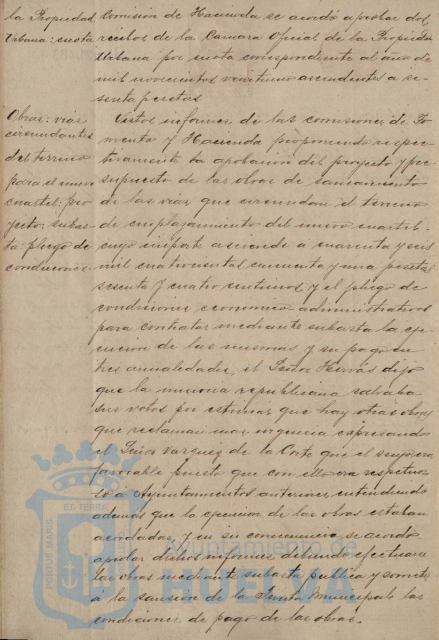 la Propiedad
Urbana: cuota
comision de Hacienda se acordó aprobar dos
recibos de la Camara Oficial de la Propiedad
Urbana por cuota correspondiente al año de
mil novecientos veintiuno ascendentes a se-
senta pesetas
Obras: vias
circundantes
del terreno
para el nuevo
cuartel: pro-
yecto: subas-
ta: pliego de
condiciones.
Vistos informes de las comisiones de Fo-
mento y Hacienda proponiendo respec-
tivamente la aprobacion del proyecto y pre-
supuesto de las obras de saneamiento
de las vias que circundan el terreno
de emplazamiento del nuevo cuartel
cuyo importe asciende a cuarenta y seis
mil cuatrocientas cincuenta y una pesetas
sesenta y cuatro centimos y el pliego de
condiciones economico administrativas
para contratar mediante subasta la eje-
cucion de las mismas y su pago en
tres anualidades, el Señor Hervás dijo
que la minoria republicana salvaba
sus votos por estimar que hay otras obras
que reclaman mas urgencia expresando
el Señor Vazquez de la Corte que el suyo era
favorable puesto que con ello era respectuo-
so a Ayuntamientos anteriores entendiendo
ademas que la ejecucion de las obras estaban
acordadas, y en su consecuencia se acordó
aprobar dichos informes debiendo efectuarse
las obras mediante subasta publica y someter
á la sancion de la Junta Municipal las
condiciones de pago de las obras.
PORTUS MARIS
ET TERRÆ
Ayuntamiento de
HUELVA